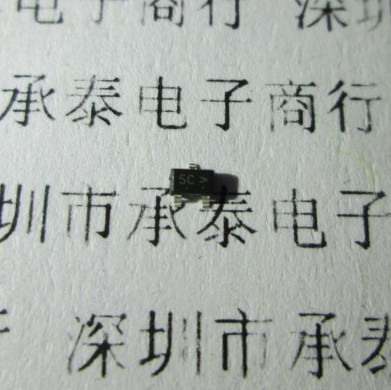 电子商行 深圳
承泰电子商行
5C >
圳市承泰电子
深圳市承泰